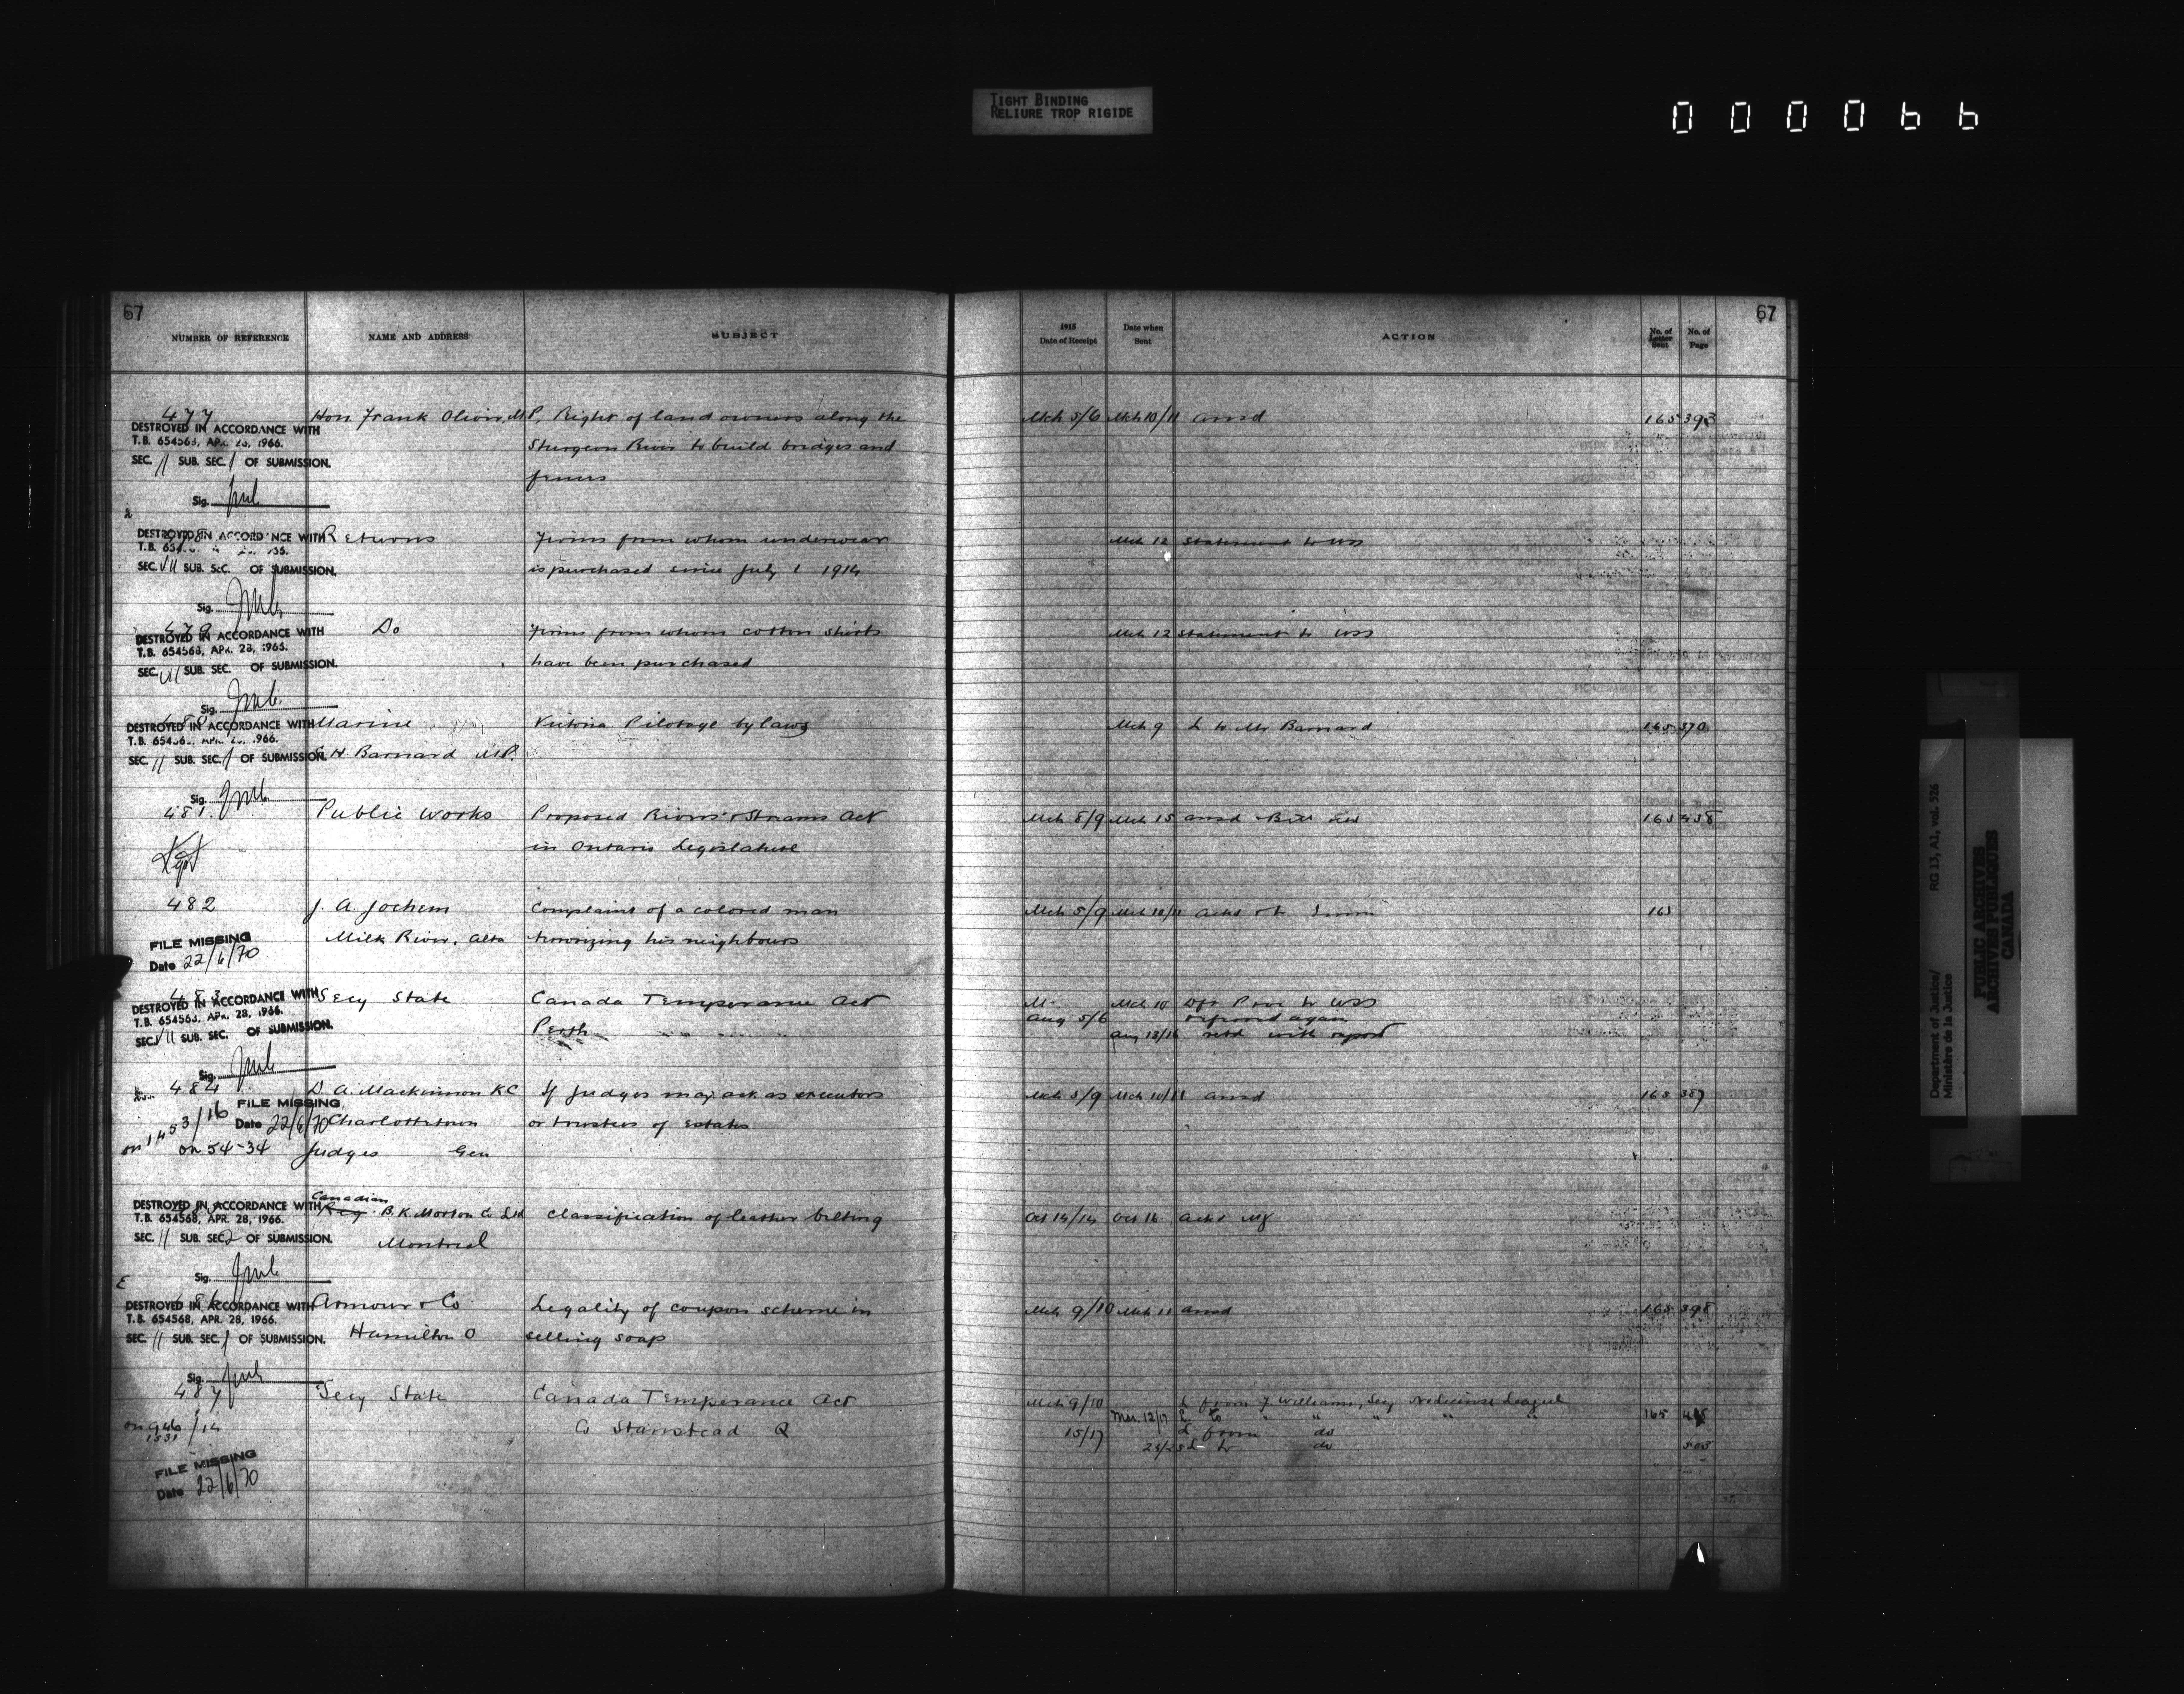 TIGHT BINDING
RELIURE TROP RIGIDE
000066
67
NUMBER OF REFERENCE NAME AND ADDRESS SUBJECT
1915
Date of Receipt Date when Sent ACTION No. of Letter Sent No. of Page
67
477 Hon Frank Oliver, M.P. Right of land owners along the Mch 5/6 Mch 10/11 ansd 165 393
DESTROYED IN ACCORDANCE WITH
T.B. 654568, APR. 28, 1966.
Sturgeon River to build bridges and
SEC. 11 SUB. SEC. 1 OF SUBMISSION.
Sig.
DESTROYED IN ACCORDANCE WITH Returns Firms from whom underwear Mch 12 Statement to USS
SEC. VII SUB. SEC. OF SUBMISSION.
is purchased since July 1 1914
Sig.
479 Do Firms from whom cotton shirts Mch 12 Statement to USS
DESTROYED IN ACCORDANCE WITH
T.B. 654568, APR. 28, 1966.
have been purchased
SEC. VII SUB. SEC. OF SUBMISSION.
Sig.
DESTROYED IN ACCORDANCE WITH Marine Victoria Pilotage by laws Mch 9 L to Mr Barnard 165 370
SEC. 11 SUB. SEC. 1 OF SUBMISSION. H Barnard M.P.
Sig.
481 Public Works Proposed Rivers & Streams Act Mch 8/9 Mch 15 ansd Bill 165 438
in Ontario Legislature
482 J. A. Jochem Complaint of a colored man Mch 5/9 Mch 10/11 ackd 165
FILE MISSING Milk River, Alta terrorizing his neighbours
Date 22/6/70
483 Secy State Canada Temperance Act Mch 10
DESTROYED IN ACCORDANCE WITH
T.B. 654568, APR. 28, 1966.
Perth Aug 5/6 referred again
SEC. VII SUB. SEC. OF SUBMISSION.
Aug 18/16 retd with report
Sig.
484 D. A. Mackinnon KC If Judges may act as executors Mch 5/9 Mch 10/11 ansd 165 387
on 1453/16 FILE MISSING
Date 22/6/70 Charlottetown or trustees of Estates
on 54-34 Judges Gen
Canadian
DESTROYED IN ACCORDANCE WITH B.K. Morton Co Ltd Classification of leather belting Oct 14/14 Oct 16 ackd
T.B. 654568, APR. 28, 1966.
SEC. 11 SUB. SEC. 2 OF SUBMISSION.
Montreal
Sig.
DESTROYED IN ACCORDANCE WITH Armour & Co Legality of coupon scheme in Mch 9/10 Mch 11 ansd 165 398
T.B. 654568, APR. 28, 1966.
Hamilton O selling soap
SEC. 11 SUB. SEC. 1 OF SUBMISSION.
Sig.
487 Secy State Canada Temperance Act Mch 9/10 L from J Williams, Secy League
on 946/14 Mar. 12/17 L to " " " " " 165
1531 Co Stanstead Q 15/17 L from do
L to do 503
FILE MISSING
Date 22/6/70
Department of Justice/
Ministère de la Justice
RG 13, A1, vol. 526
PUBLIC ARCHIVES
ARCHIVES PUBLIQUES
CANADA